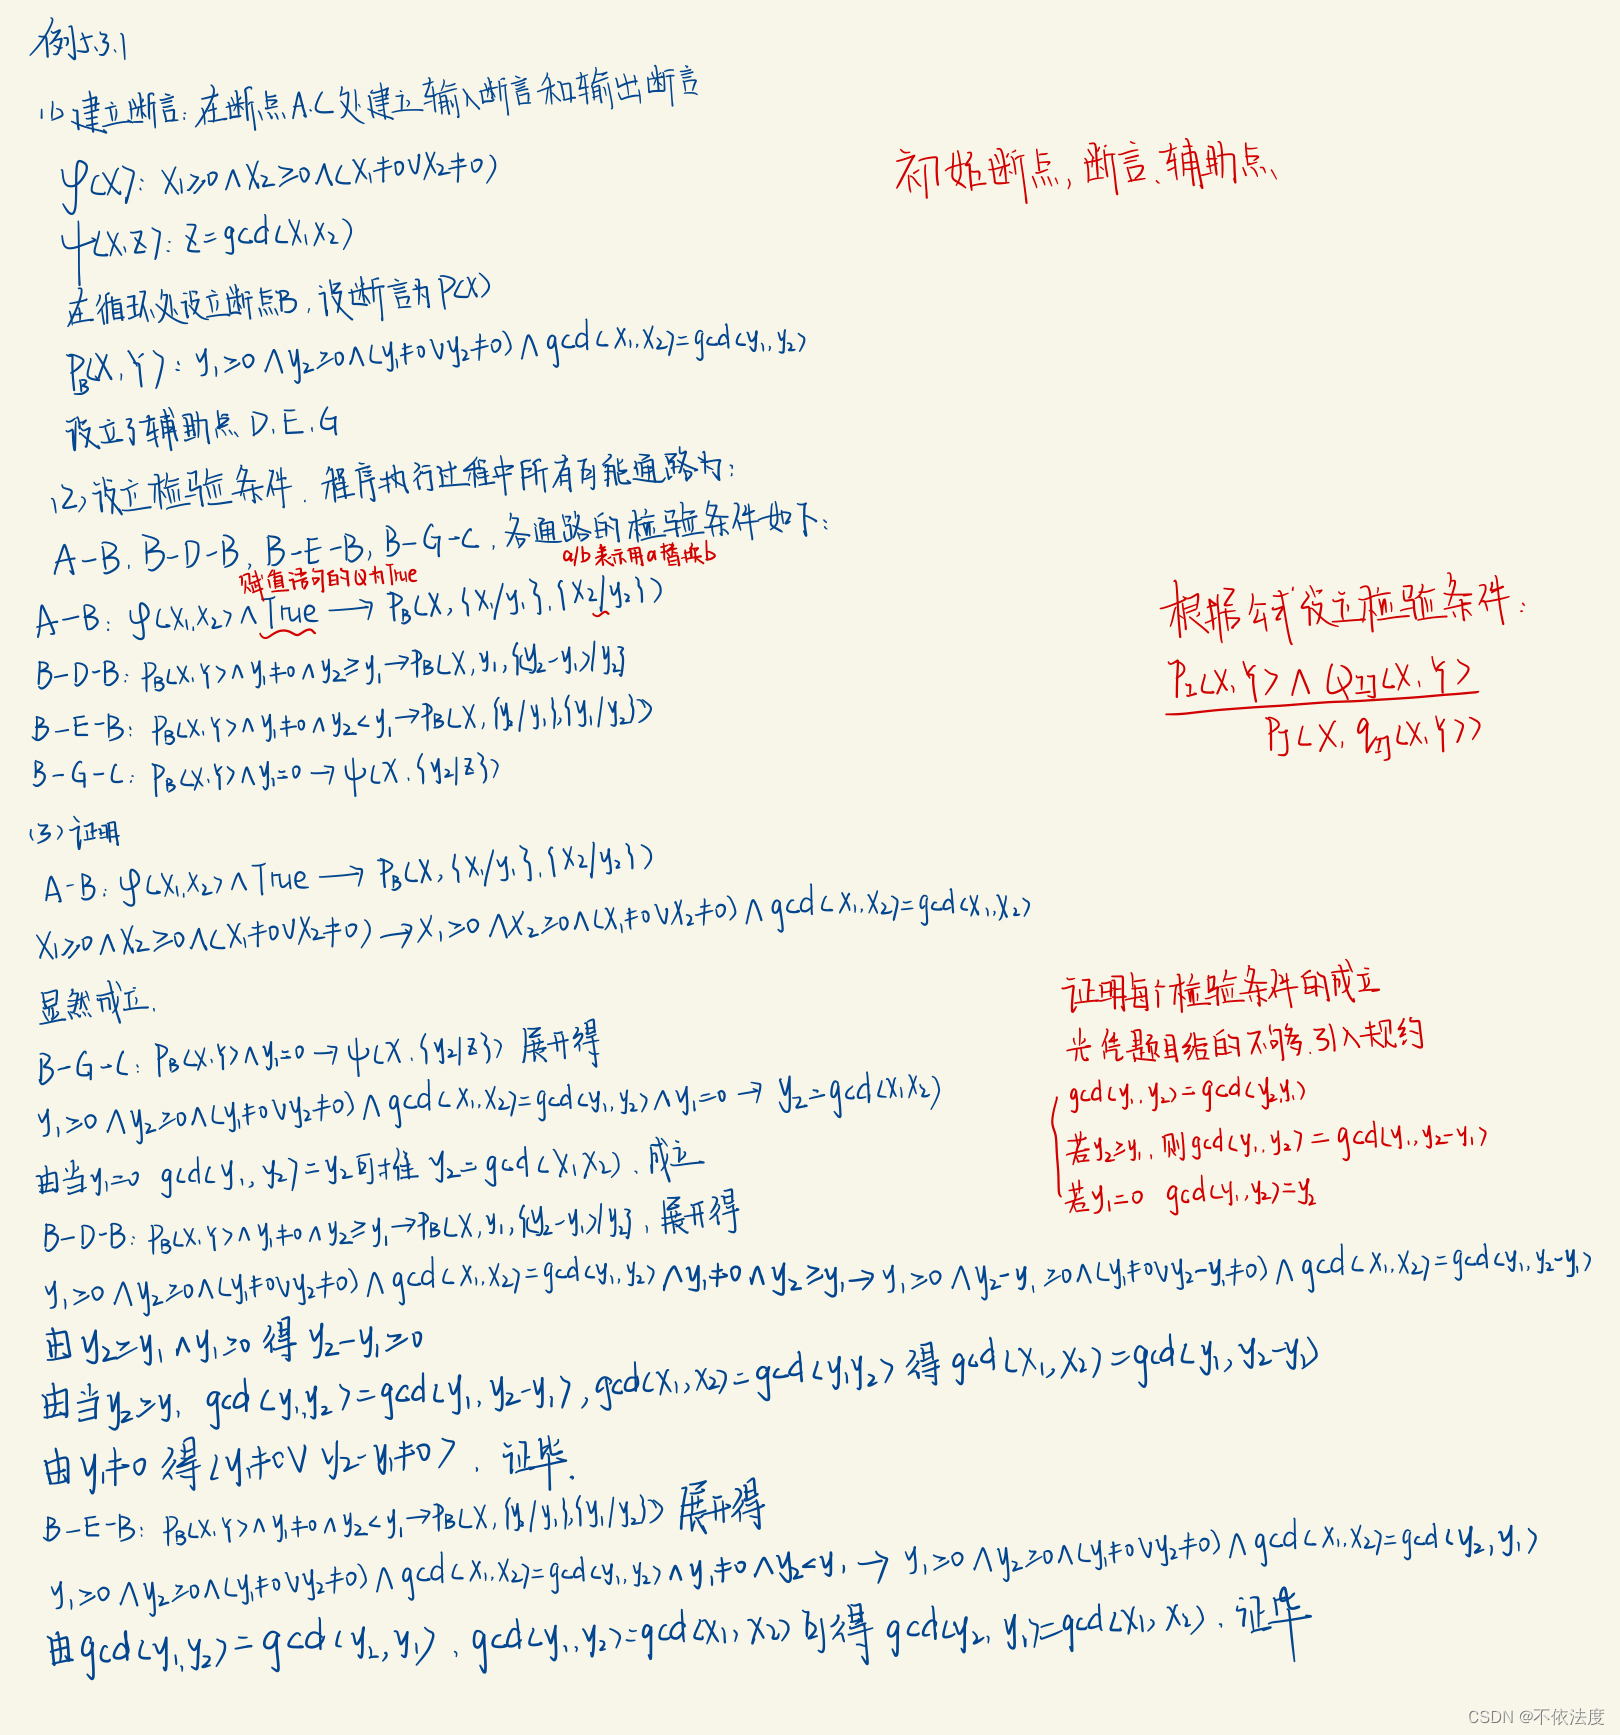 例5.3.1
(1)建立断言:在断点A.C处建立输入断言和输出断言
φ(X): X₁≥0∧X₂≥0∧(X₁≠0∨X₂≠0)
初始断点,断言、辅助点、
ψ(X,Z): Z=gcd(X₁X₂)
在循环处设立断点B,设断言为P(X)
P_B(X,Y): y₁≥0∧y₂≥0∧(y₁≠0∨y₂≠0)∧gcd(X₁,X₂)=gcd(y₁,y₂)
设立了辅助点D.E.G
(2)设立检验条件.程序执行过程中所有可能通路为:
A-B.B-D-B,B-E-B,B-G-C,各通路的检验条件如下:
赋值语句的Q为True
a/b表示用a替换b
A-B: φ(X₁,X₂)∧True→P_B(X,{X₁/y₁},{X₂/y₂})
根据公式设立检验条件:
B-D-B: P_B(X,Y)∧y₁≠0∧y₂≥y₁→P_B(X,y₁,{(y₂-y₁)/y₂}
P_I(X,Y)∧Q_IJ(X,Y)
B-E-B: P_B(X,Y)∧y₁≠0∧y₂<y₁→P_B(X,{y₂/y₁},{y₁/y₂})
P_J(X,q_IJ(X,Y))
B-G-C: P_B(X,Y)∧y₁=0→ψ(X,{y₂/z})
(3)证明
A-B: φ(X₁,X₂)∧True→P_B(X,{X₁/y₁},{X₂/y₂})
X₁≥0∧X₂≥0∧(X₁≠0∨X₂≠0)→X₁≥0∧X₂≥0∧(X₁≠0∨X₂≠0)∧gcd(X₁,X₂)=gcd(X₁,X₂)
显然成立.
证明每个检验条件的成立
光凭题目给的不够.引入规约
gcd(y₁,y₂)=gcd(y₂,y₁)
若y₂≥y₁,则gcd(y₁,y₂)=gcd(y₁,y₂-y₁)
若y₁=0 gcd(y₁,y₂)=y₂
B-G-C: P_B(X,Y)∧y₁=0→ψ(X,{y₂/z})展开得
y₁≥0∧y₂≥0∧(y₁≠0∨y₂≠0)∧gcd(X₁,X₂)=gcd(y₁,y₂)∧y₁=0→y₂=gcd(X₁X₂)
由当y₁=0 gcd(y₁,y₂)=y₂可推y₂=gcd(X₁X₂).成立
B-D-B: P_B(X,Y)∧y₁≠0∧y₂≥y₁→P_B(X,y₁,{(y₂-y₁)/y₂},展开得
y₁≥0∧y₂≥0∧(y₁≠0∨y₂≠0)∧gcd(X₁,X₂)=gcd(y₁,y₂)∧y₁≠0∧y₂≥y₁→y₁≥0∧y₂-y₁≥0∧(y₁≠0∨y₂-y₁≠0)∧gcd(X₁,X₂)=gcd(y₁,y₂-y₁)
由y₂≥y₁∧y₁≥0得y₂-y₁≥0
由当y₂≥y₁ gcd(y₁,y₂)=gcd(y₁,y₂-y₁),gcd(X₁,X₂)=gcd(y₁y₂)得gcd(X₁,X₂)=gcd(y₁,y₂-y₁)
由y₁≠0得(y₁≠0∨y₂-y₁≠0).证毕.
B-E-B: P_B(X,Y)∧y₁≠0∧y₂<y₁→P_B(X,{y₂/y₁},{y₁/y₂})展开得
y₁≥0∧y₂≥0∧(y₁≠0∨y₂≠0)∧gcd(X₁,X₂)=gcd(y₁,y₂)∧y₁≠0∧y₂<y₁→y₁≥0∧y₂≥0∧(y₁≠0∨y₂≠0)∧gcd(X₁,X₂)=gcd(y₂,y₁)
由gcd(y₁,y₂)=gcd(y₂,y₁).gcd(y₁,y₂)=gcd(X₁,X₂)可得gcd(y₂,y₁)=gcd(X₁,X₂).证毕
CSDN @不依法度